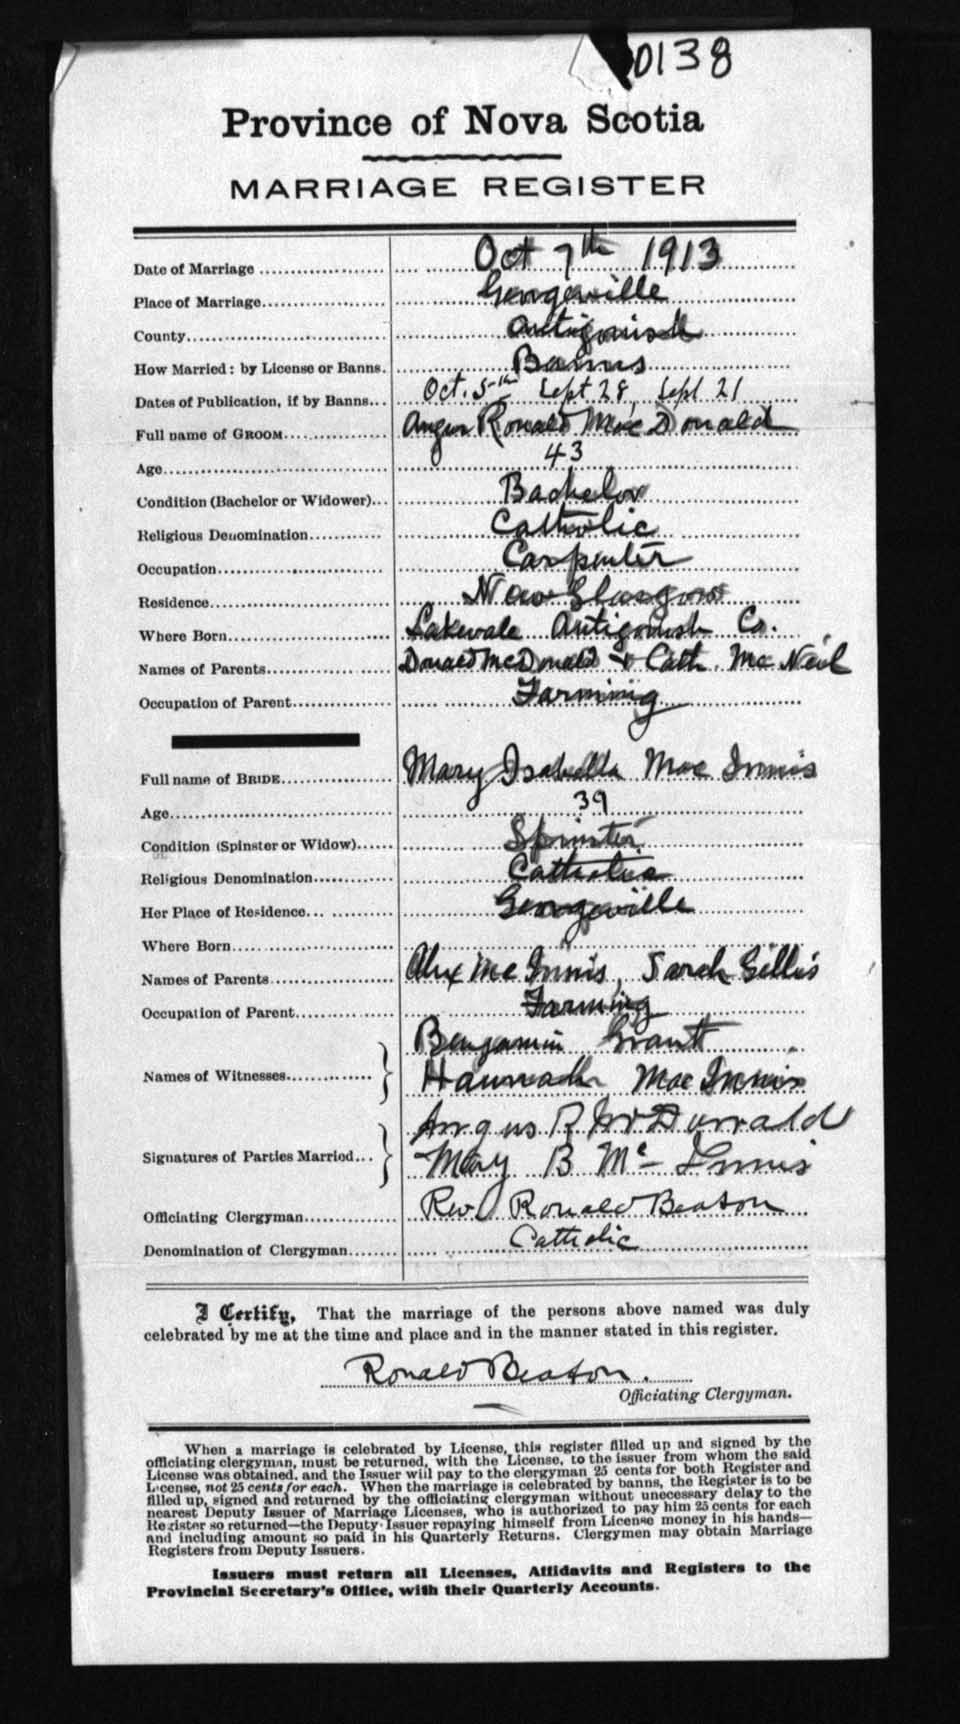 0138
Province of Nova Scotia
MARRIAGE REGISTER
Date of Marriage Oct 7th 1913
Place of Marriage Georgeville
County Antigonish
How Married: by License or Banns. Banns
Dates of Publication, if by Banns Oct. 5th Sept 28, Sept 21
Full name of GROOM Angus Ronald MacDonald
Age 43
Condition (Bachelor or Widower) Bachelor
Religious Denomination Catholic
Occupation Carpenter
Residence New Glasgow
Where Born Lakevale Antigonish Co.
Names of Parents Donald McDonald & Cath. McNeil
Occupation of Parent Farming
Full name of BRIDE Mary Isabella MacInnis
Age 39
Condition (Spinster or Widow) Spinster
Religious Denomination Catholic
Her Place of Residence Georgeville
Where Born "
Names of Parents Alex McInnis, Sarah Gillis
Occupation of Parent Farming
Names of Witnesses Benjamin Grant
Hannah MacInnis
Signatures of Parties Married Angus R McDonald
Mary B Mc-Innis
Officiating Clergyman Rev Ronald Beaton
Denomination of Clergyman Catholic
I Certify, That the marriage of the persons above named was duly
celebrated by me at the time and place and in the manner stated in this register.
Ronald Beaton.
Officiating Clergyman.
When a marriage is celebrated by License, this register filled up and signed by the
officiating clergyman, must be returned, with the License, to the issuer from whom the said
License was obtained, and the Issuer will pay to the clergyman 25 cents for both Register and
License, not 25 cents for each. When the marriage is celebrated by banns, the Register is to be
filled up, signed and returned by the officiating clergyman without unnecessary delay to the
nearest Deputy Issuer of Marriage Licenses, who is authorized to pay him 25 cents for each
Register so returned—the Deputy Issuer repaying himself from License money in his hands—
and including amount so paid in his Quarterly Returns. Clergymen may obtain Marriage
Registers from Deputy Issuers.
Issuers must return all Licenses, Affidavits and Registers to the
Provincial Secretary's Office, with their Quarterly Accounts.